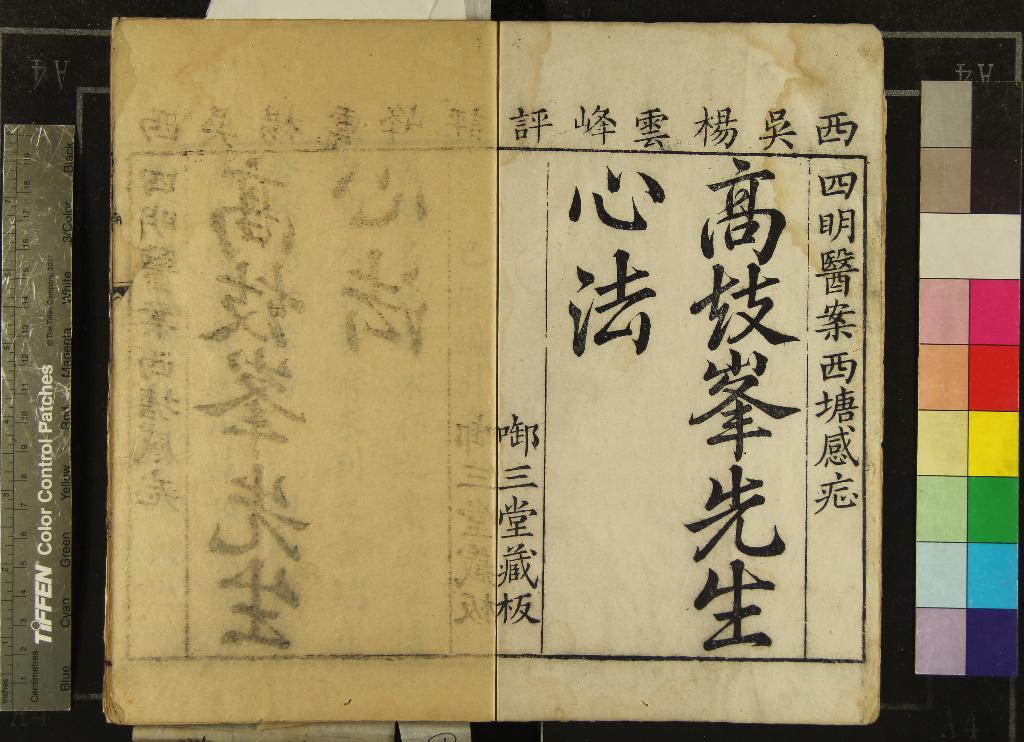 西吳楊雲峰評
四明醫案西塘感症
高𡔷峯先生
心法
啣三堂藏板
TIFFEN Color Control Patches
© The Tiffen Company, 2007
Inches
Centimetres
Blue
Cyan
Green
Yellow
Red
Magenta
White
3/Color
Black
A4
A4
A4